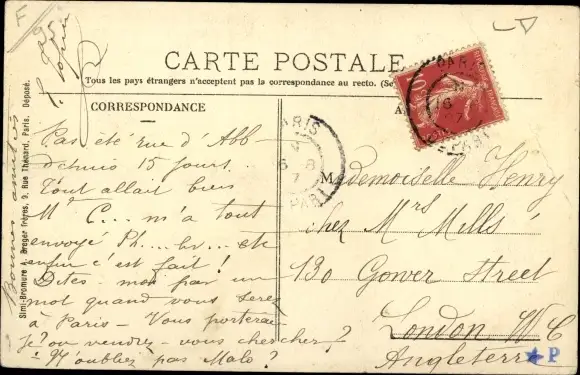 F
CARTE POSTALE
Tous les pays étrangers n'acceptent pas la correspondance au recto. (Se
CORRESPONDANCE
Simi-Bromure A. Breger frères, 9, Rue Thénard, Paris. Déposé.
Bonnes amitiés
Pas été rue d'Abb
depuis 15 jours.
Tout allait bien
Mr C... m'a tout
envoyé Ph.... br... etc
enfin c'est fait !
Dites-moi par un
mot quand vous serez
à Paris – Vous porterai
je? ou viendrez-vous chercher?
– N'oubliez pas Malo ?
PARIS
PARIS
Mademoiselle Henry
chez Mrs Mills
130 Gower Street
London W C
Angleterre
P